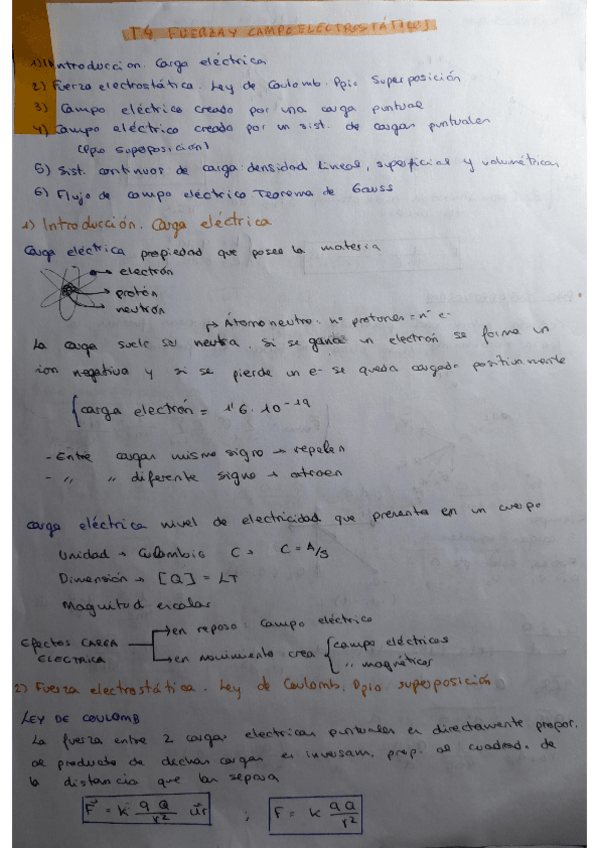 T4 FUERZA Y CAMPO ELECTROSTÁTICOS
1) Introduccion. Carga eléctrica
2) Fuerza electrostática. Ley de Coulomb. Ppio Superposición
3) Campo eléctrico creado por una carga puntual
4) Campo eléctrico creado por un sist. de cargas puntuales
(Ppio Superposición)
5) Sist. continuos de carga: densidad lineal, superficial y volumétricas
6) Flujo de campo eléctrico Teorema de Gauss
1) Introducción. Carga eléctrica
Carga eléctrica propiedad que posee la materia
electrón
protón
neutrón
↳ Átomo neutro: nº protones = nº e-
La carga suele ser neutra. Si se gana un electrón se forma un
ion negativa y si se pierde un e- se queda cargado positivamente
{carga electrón = 1'6 · 10⁻¹⁹
- Entre cargas mismo signo → repelen
- " " diferente signo → atraen
Carga eléctrica nivel de electricidad que presenta en un cuerpo
Unidad → Culombio C → C = A/s
Dimensión → [Q] = LT
Magnitud escalar
Efectos CARGA ELECTRICA
en reposo: Campo eléctrico
en movimiento crea {campo eléctricos
" magnéticos
2) Fuerza electrostática. Ley de Coulomb. Ppio superposición
LEY DE COULOMB
La fuerza entre 2 cargas electricas puntuales es directamente propor.
al producto de dichas cargas es inversam. prop. al cuadrad. de
la distancia que las separa
F⃗ = k q Q / r² u⃗r ; F = k q Q / r²